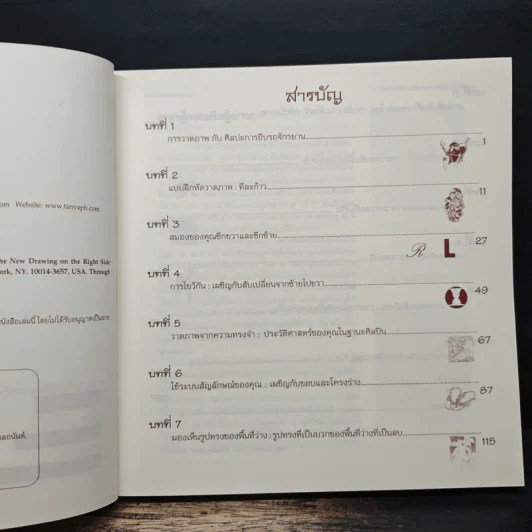 om Website: www.tanyaph.com
he New Drawing on the Right Side
ork, NY. 10014-3657, USA. Through
นังสือเล่มนี้ โดยไม่ได้รับอนุญาตเป็นลาย
สารบัญ
บทที่ 1
การวาดภาพ กับ ศิลปะการถีบรถจักรยาน 1
บทที่ 2
แบบฝึกหัดวาดภาพ : ทีละก้าว 11
บทที่ 3
สมองของคุณซีกขวาและซีกซ้าย 27
R L
บทที่ 4
การไขว้กัน : เผชิญกับสับเปลี่ยนจากซ้ายไปขวา 49
บทที่ 5
วาดภาพจากความทรงจำ : ประวัติศาสตร์ของคุณในฐานะศิลปิน 67
บทที่ 6
ใช้ระบบสัญลักษณ์ของคุณ : เผชิญกับขอบและโครงร่าง 87
บทที่ 7
มองเห็นรูปทรงของพื้นที่ว่าง : รูปทรงที่เป็นบวกของพื้นที่ว่างที่เป็นลบ 115